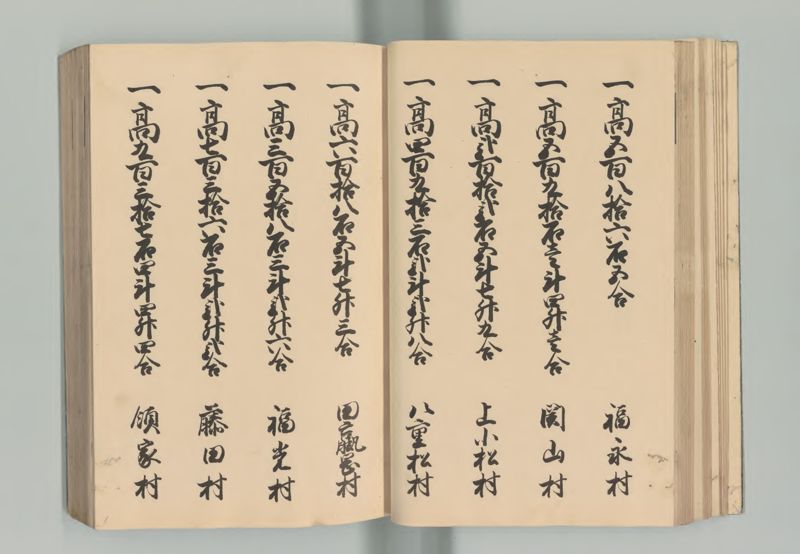 一高五百八拾六石五合 福永村
一高五百九拾石壱斗四升壱合 関山村
一高弐百拾弐石五斗七升九合 上小松村
一高四百九拾三石弐斗弐升八合 八重松村
一高六百拾八石五斗七升三合 村
一高三百五拾八石三斗弐升六合 福光村
一高七百三拾六石三斗弐升弐合 藤田村
一高九百三拾七石四斗四升四合 領家村